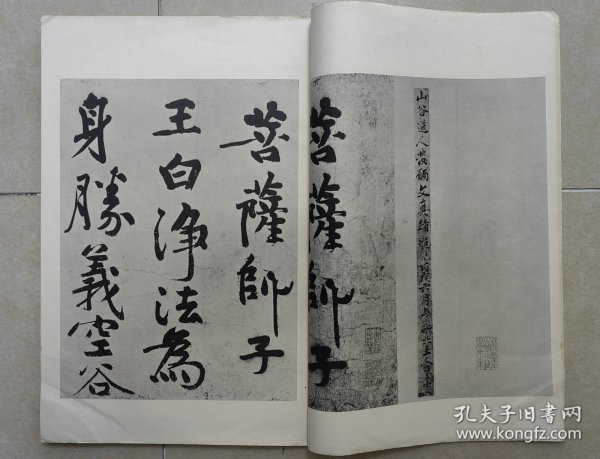 山谷道人發願文真蹟
菩薩師子
菩薩師子
王白淨法為
身勝義空谷
孔夫子旧书网
www.kongfz.com